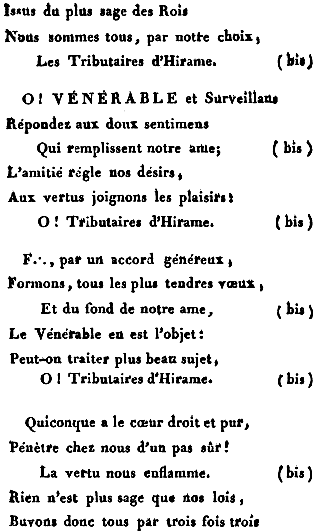 Issus du plus sage des Rois
Nous sommes tous, par notre choix,
Les Tributaires d'Hirame. (bis)
O! VÉNÉRABLE et Surveillans
Répondez aux doux sentimens
Qui remplissent notre ame; (bis)
L'amitié régle nos désirs,
Aux vertus joignons les plaisirs:
O! Tributaires d'Hirame. (bis)
F∴, par un accord généreux,
Formons, tous les plus tendres vœux,
Et du fond de notre ame, (bis)
Le Vénérable en est l'objet:
Peut-on traiter plus beau sujet,
O! Tributaires d'Hirame. (bis)
Quiconque a le cœur droit et pur,
Pénètre chez nous d'un pas sûr!
La vertu nous enflamme. (bis)
Rien n'est plus sage que nos lois,
Buvons donc tous par trois fois trois